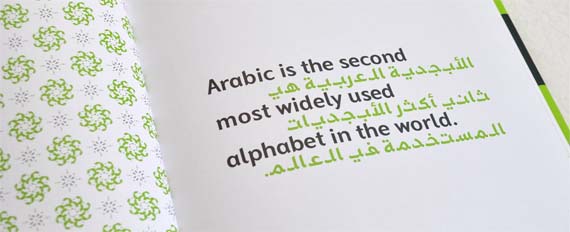 Arabic is the second
الأبجدية العربية هي
most widely used
ثاني أكثر الأبجديات
alphabet in the world.
المستخدمة في العالم.